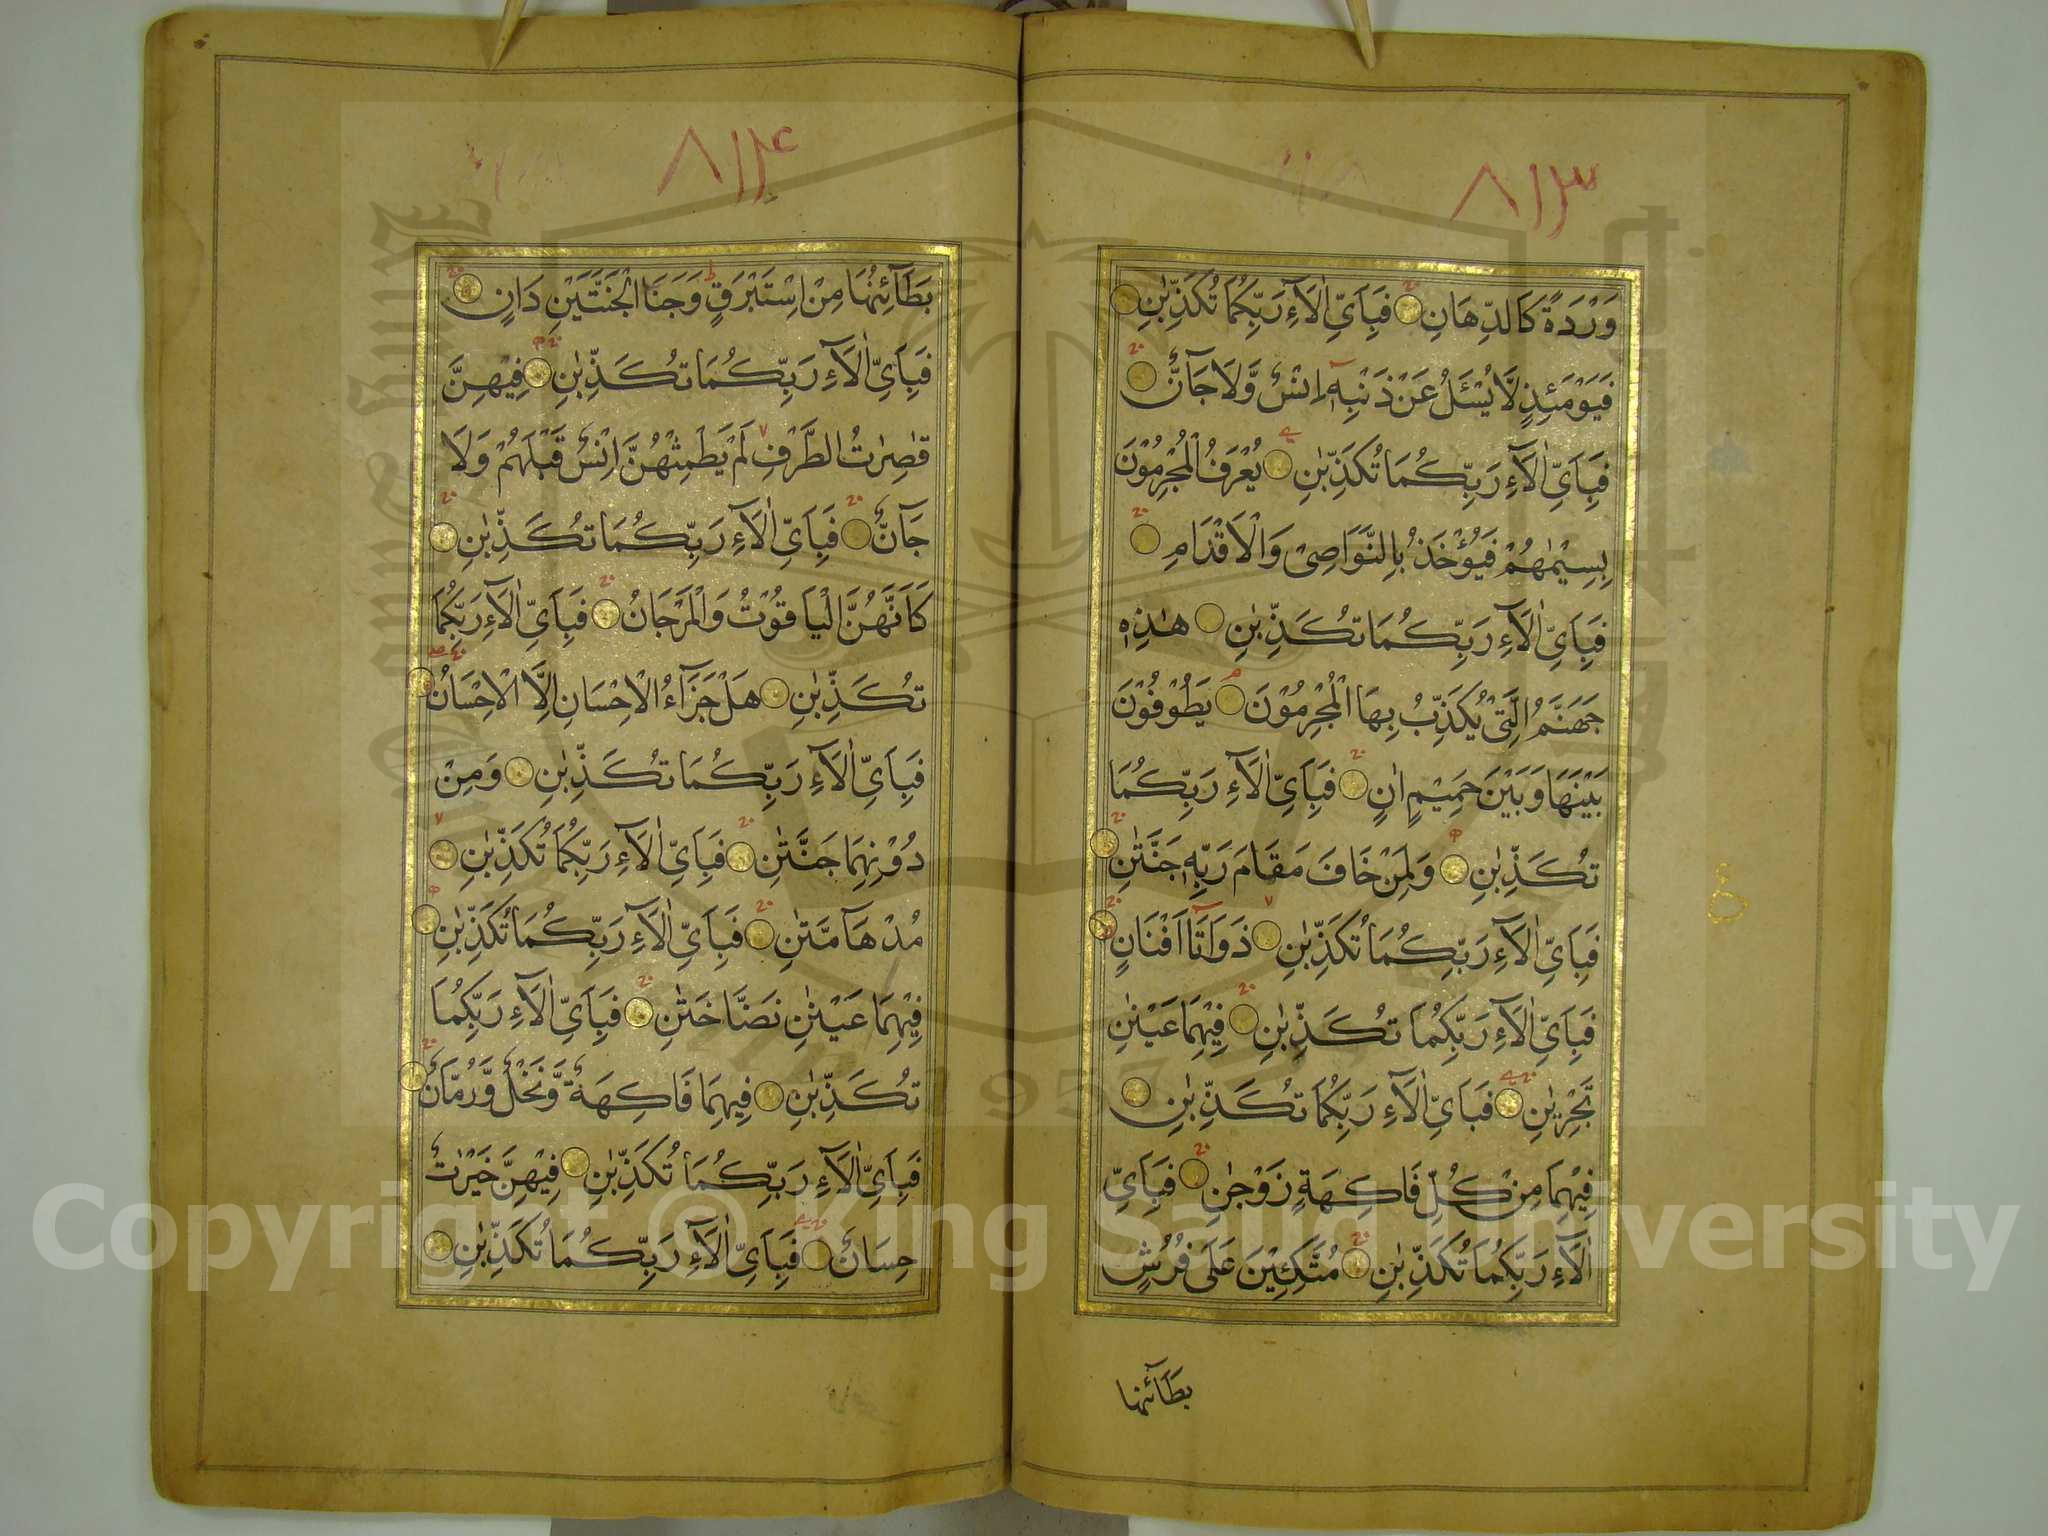 ٨١٣
وَرْدَةً كَالدِّهَانِ فَبِاَىِّ اٰلَآءِ رَبِّكُمَا تُكَذِّبٰنِ
فَيَوْمَئِذٍ لَّا يُسْـَٔلُ عَنْ ذَنْبِهٖٓ اِنْسٌ وَّلَا جَآنٌّ
فَبِاَىِّ اٰلَآءِ رَبِّكُمَا تُكَذِّبٰنِ يُعْرَفُ الْمُجْرِمُوْنَ
بِسِيْمٰهُمْ فَيُؤْخَذُ بِالنَّوَاصِىْ وَالْاَقْدَامِ
فَبِاَىِّ اٰلَآءِ رَبِّكُمَا تُكَذِّبٰنِ هٰذِهٖ
جَهَنَّمُ الَّتِىْ يُكَذِّبُ بِهَا الْمُجْرِمُوْنَ يَطُوْفُوْنَ
بَيْنَهَا وَبَيْنَ حَمِيْمٍ اٰنٍ فَبِاَىِّ اٰلَآءِ رَبِّكُمَا
تُكَذِّبٰنِ وَلِمَنْ خَافَ مَقَامَ رَبِّهٖ جَنَّتٰنِ
فَبِاَىِّ اٰلَآءِ رَبِّكُمَا تُكَذِّبٰنِ ذَوَاتَآ اَفْنَانٍ
فَبِاَىِّ اٰلَآءِ رَبِّكُمَا تُكَذِّبٰنِ فِيْهِمَا عَيْنٰنِ
تَجْرِيٰنِ فَبِاَىِّ اٰلَآءِ رَبِّكُمَا تُكَذِّبٰنِ
فِيْهِمَا مِنْ كُلِّ فَاكِهَةٍ زَوْجٰنِ فَبِاَىِّ
اٰلَآءِ رَبِّكُمَا تُكَذِّبٰنِ مُتَّكِئِيْنَ عَلٰى فُرُشٍ
بَطَآئنها
٨١٤
بَطَآئِنُهَا مِنْ اِسْتَبْرَقٍ وَجَنَا الْجَنَّتَيْنِ دَانٍ
فَبِاَىِّ اٰلَآءِ رَبِّكُمَا تُكَذِّبٰنِ فِيْهِنَّ
قٰصِرٰتُ الطَّرْفِ لَمْ يَطْمِثْهُنَّ اِنْسٌ قَبْلَهُمْ وَلَا
جَآنٌّ فَبِاَىِّ اٰلَآءِ رَبِّكُمَا تُكَذِّبٰنِ
كَاَنَّهُنَّ الْيَاقُوْتُ وَالْمَرْجَانُ فَبِاَىِّ اٰلَآءِ رَبِّكُمَا
تُكَذِّبٰنِ هَلْ جَزَآءُ الْاِحْسَانِ اِلَّا الْاِحْسَانُ
فَبِاَىِّ اٰلَآءِ رَبِّكُمَا تُكَذِّبٰنِ وَمِنْ
دُوْنِهِمَا جَنَّتٰنِ فَبِاَىِّ اٰلَآءِ رَبِّكُمَا تُكَذِّبٰنِ
مُدْهَآمَّتٰنِ فَبِاَىِّ اٰلَآءِ رَبِّكُمَا تُكَذِّبٰنِ
فِيْهِمَا عَيْنٰنِ نَضَّاخَتٰنِ فَبِاَىِّ اٰلَآءِ رَبِّكُمَا
تُكَذِّبٰنِ فِيْهِمَا فَاكِهَةٌ وَّنَخْلٌ وَّرُمَّانٌ
فَبِاَىِّ اٰلَآءِ رَبِّكُمَا تُكَذِّبٰنِ فِيْهِنَّ خَيْرٰتٌ
حِسَانٌ فَبِاَىِّ اٰلَآءِ رَبِّكُمَا تُكَذِّبٰنِ
Copyright © King Saud University
1957